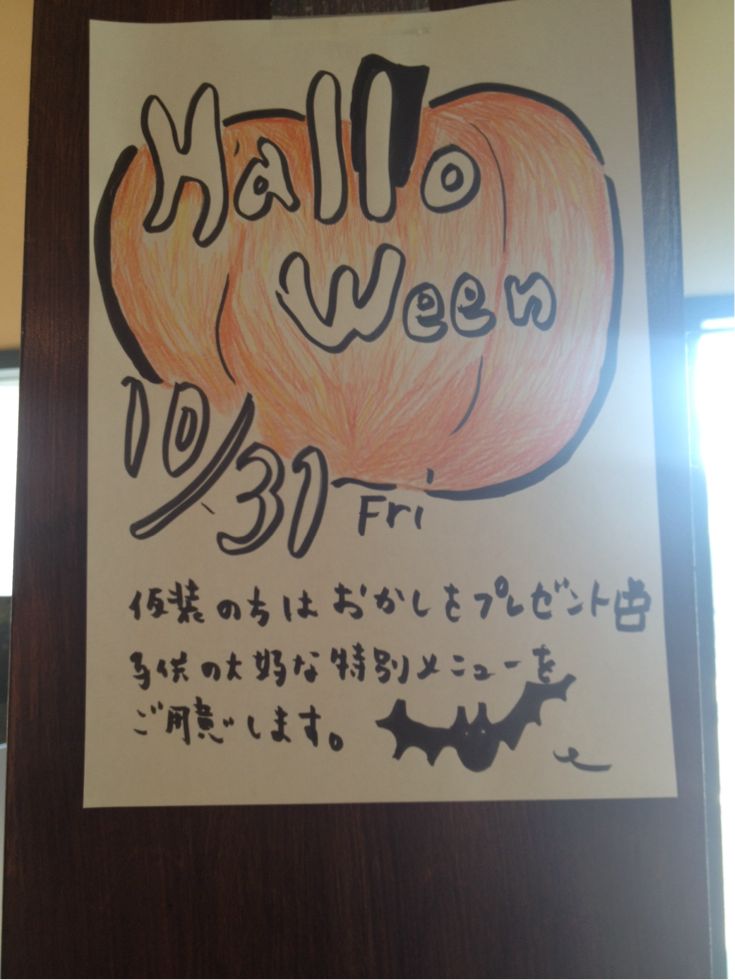 Hallo
Ween
10/31 Fri
仮装のちはおかしをプレゼント
子供の大好な特別メニューを
ご用意します。